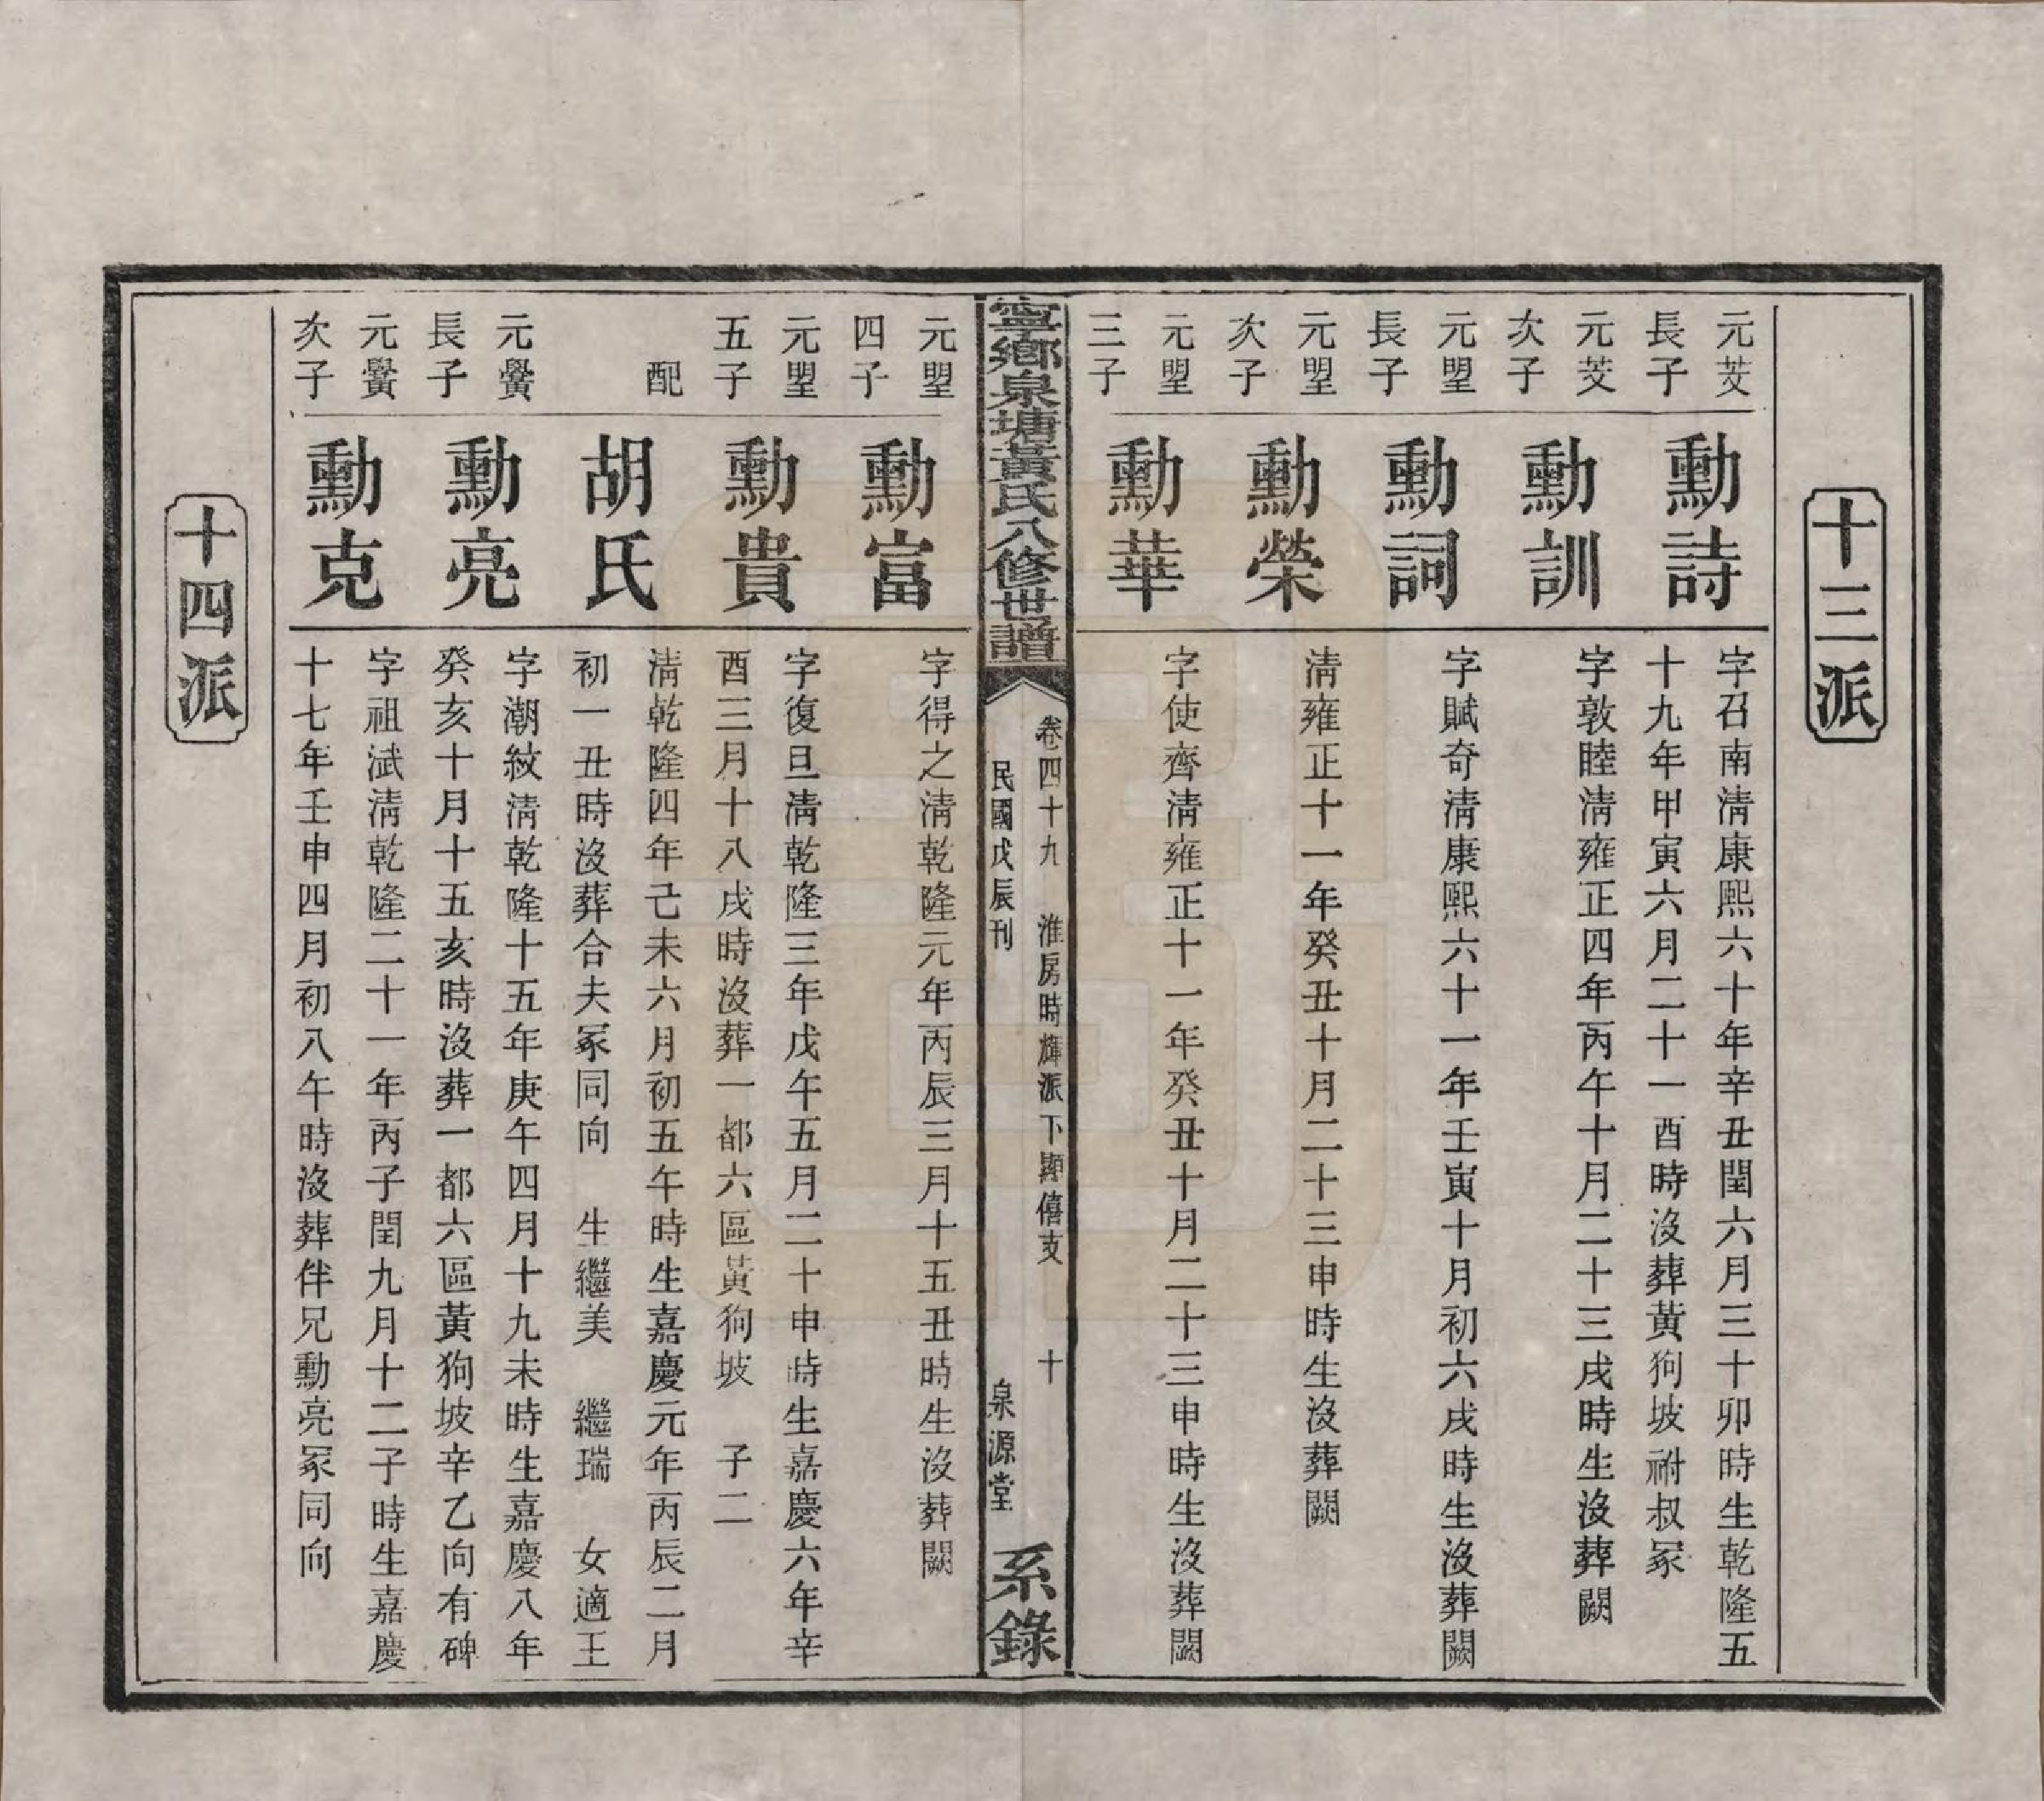 十三派
元芟
長子
勳詩
字召南淸康熙六十年辛丑閏六月三十卯時生乾隆五
十九年甲寅六月二十一酉時沒葬黃狗坡祔叔冢
元芟
次子
勳訓
字敦睦淸雍正四年丙午十月二十三戌時生沒葬闕
元瞾
長子
勳詞
字賦奇淸康熙六十一年壬寅十月初六戌時生沒葬闕
元瞾
次子
勳榮
淸雍正十一年癸丑十月二十三申時生沒葬闕
元瞾
三子
勳華
字使齊淸雍正十一年癸丑十月二十三申時生沒葬闕
寧鄉泉塘黃氏八修世譜
卷四十九 淮房時輝派下顯僖支 十
民國戊辰刊 泉源堂
系錄
元瞾
四子
勳富
字得之淸乾隆元年丙辰三月十五丑時生沒葬闕
元瞾
五子
勳貴
字復旦淸乾隆三年戊午五月二十申時生嘉慶六年辛
酉三月十八戌時沒葬一都六區黃狗坡 子二
配
胡氏
淸乾隆四年己未六月初五午時生嘉慶元年丙辰二月
初一丑時沒葬合夫冢同向 生繼美 繼瑞 女適王
元黌
長子
勳亮
字潮紋淸乾隆十五年庚午四月十九未時生嘉慶八年
癸亥十月十五亥時沒葬一都六區黃狗坡辛乙向有碑
元黌
次子
勳克
字祖泚淸乾隆二十一年丙子閏九月十二子時生嘉慶
十七年壬申四月初八午時沒葬伴兄勳亮冢同向
十四派